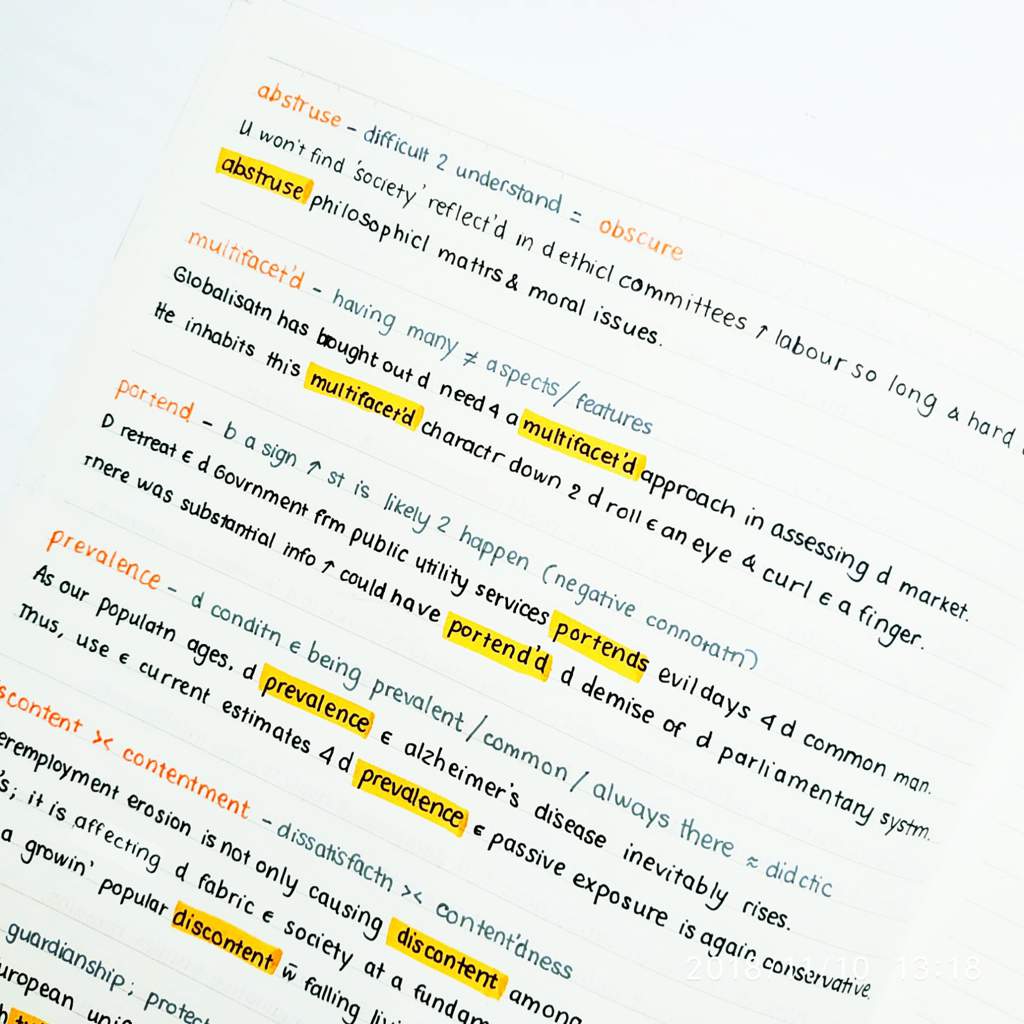 abstruse - difficult 2 understand = obscure
U won't find 'society' reflect'd in d ethicl committees ↗ labour so long & hard
abstruse philosophicl mattrs & moral issues.
multifacet'd - having many ≠ aspects/features
Globalisatn has brought out d need 4 a multifacet'd approach in assessing d market.
He inhabits this multifacet'd charactr down 2 d roll ε an eye & curl ε a finger.
portend - b a sign ↗ st is likely 2 happen (negative connotatn)
D retreat ε d Govrnment frm public utility services portends evil days 4 d common man.
There was substantial info ↗ could have portend'd d demise of d parliamentary systm.
prevalence - d conditn ε being prevalent/common/always there ≈ didctic
As our populatn ages, d prevalence ε alzheimer's disease inevitably rises.
Thus, use ε current estimates 4 d prevalence ε passive exposure is again conservative.
scontent >< contentment - dissatisfactn >< content'dness
eremployment erosion is not only causing discontent among
's; it is affecting d fabric ε society at a fundam
a growin' popular discontent w̄ falling livi
guardianship; protec
uropean unif
2018/11/10 13:18